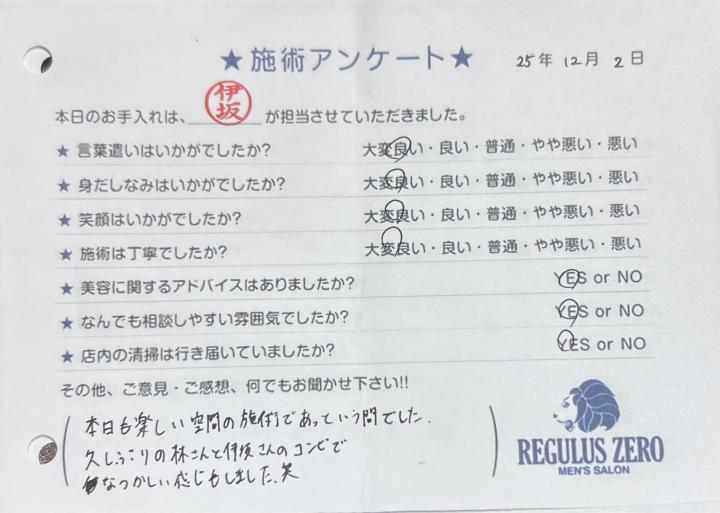 ★施術アンケート★ 25年 12月 2日
本日のお手入れは、伊坂が担当させていただきました。
★ 言葉遣いはいかがでしたか? 大変良い・良い・普通・やや悪い・悪い
★ 身だしなみはいかがでしたか? 大変良い・良い・普通・やや悪い・悪い
★ 笑顔はいかがでしたか? 大変良い・良い・普通・やや悪い・悪い
★ 施術は丁寧でしたか? 大変良い・良い・普通・やや悪い・悪い
★ 美容に関するアドバイスはありましたか? YES or NO
★ なんでも相談しやすい雰囲気でしたか? YES or NO
★ 店内の清掃は行き届いていましたか? YES or NO
その他、ご意見・ご感想、何でもお聞かせ下さい!!
本日も楽しい空間の施術であっという間でした.
久しぶりの林さんと伊坂さんのコンビで
なつかしい感じもしました.笑
REGULUS ZERO
MEN'S SALON